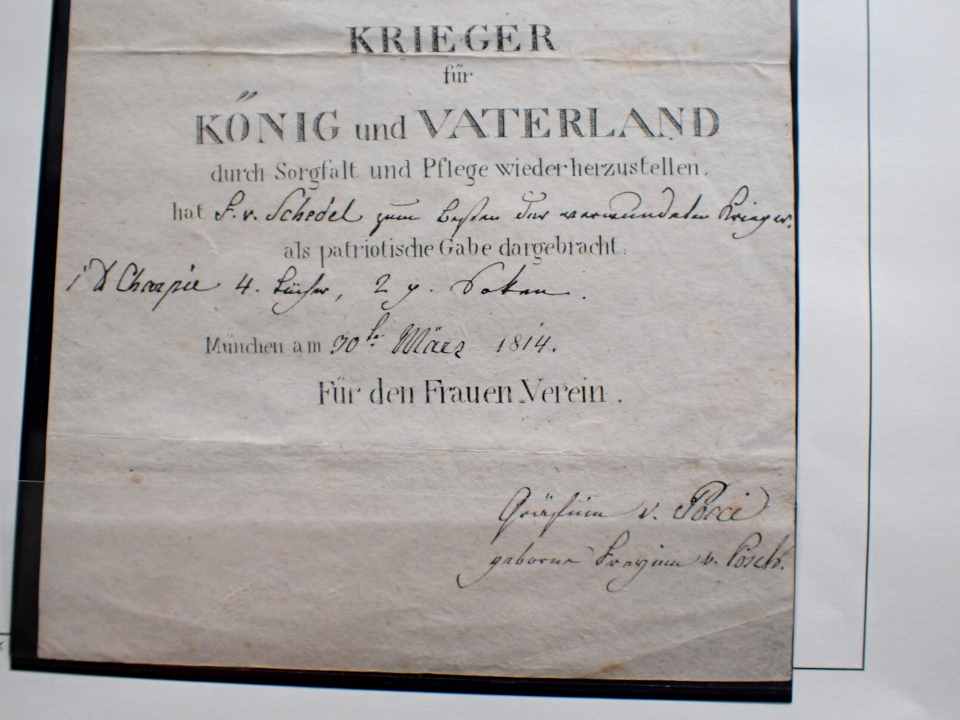 KRIEGER
für
KÖNIG und VATERLAND
durch Sorgfalt und Pflege wiederherzustellen.
hat F. v. Schedel zum besten der verwundeten Krieger.
als patriotische Gabe dargebracht.
Charpie 4. 2
München am 30 März 1814.
Für den Frauen Verein.
Gräfinn v. Pocci
geborne Freyinn v. Posch.